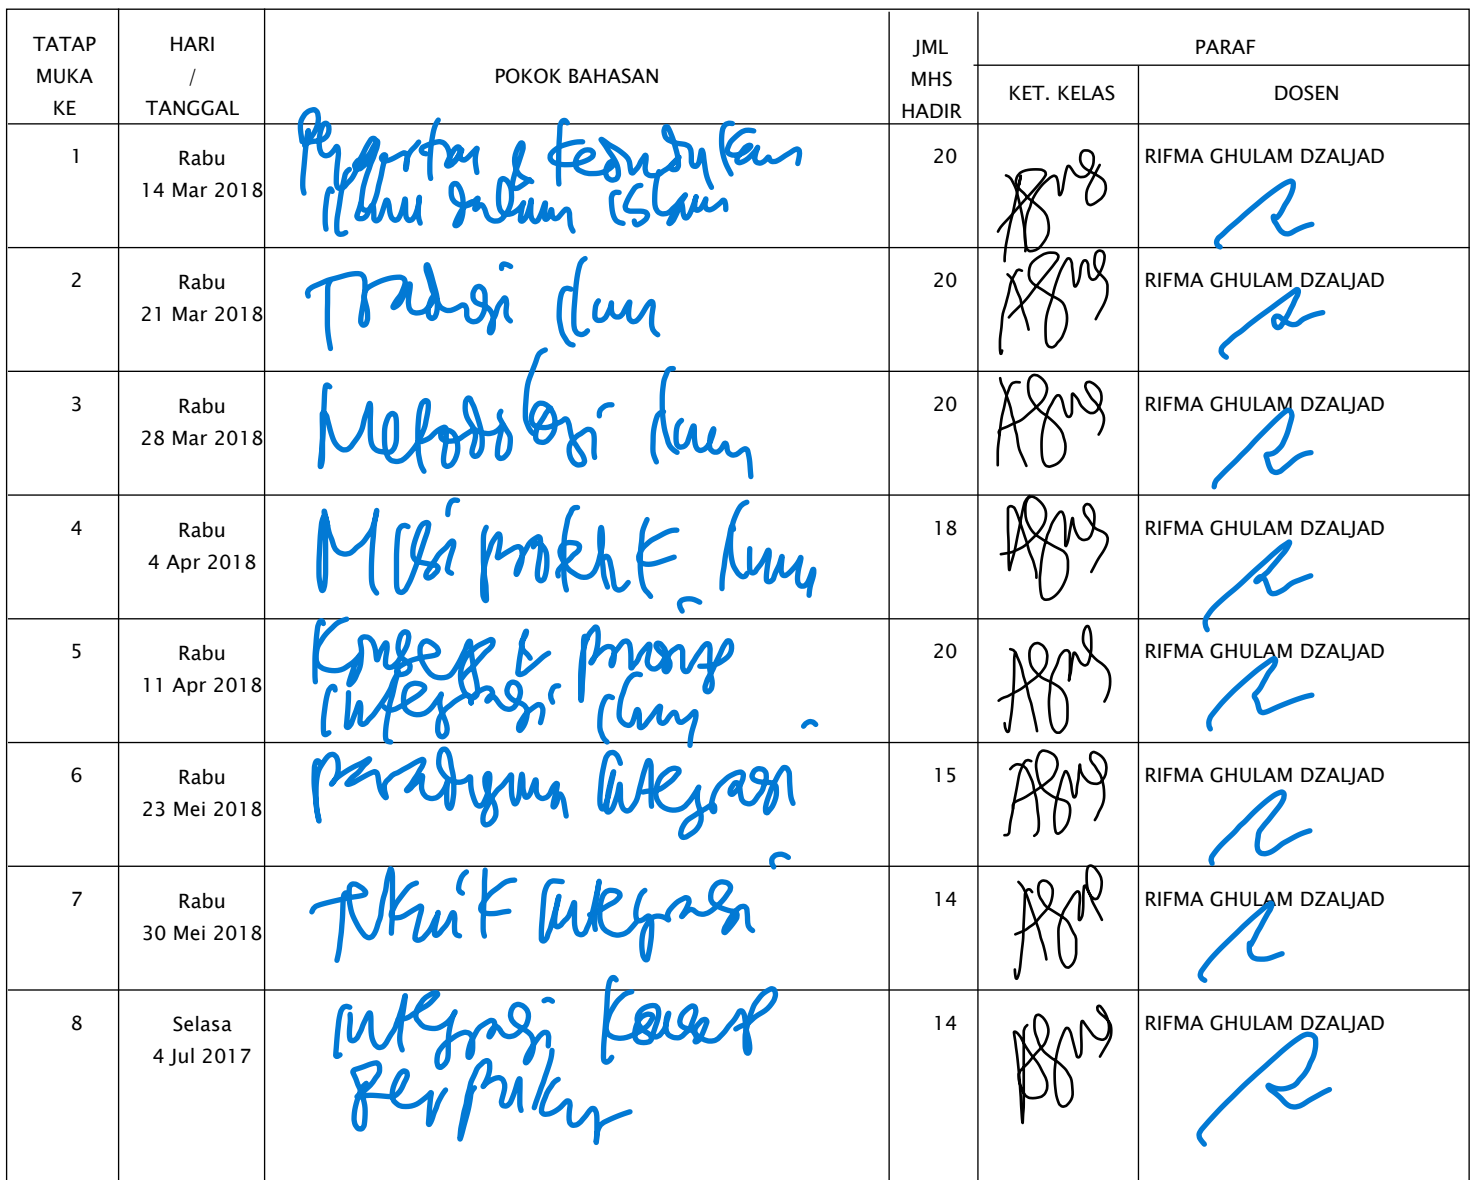 TATAP MUKA KE
HARI / TANGGAL
POKOK BAHASAN
JML MHS HADIR
PARAF
KET. KELAS
DOSEN
1
Rabu
14 Mar 2018
Pengertian & Kedudukan
Ilmu dalam islam
20
RIFMA GHULAM DZALJAD
2
Rabu
21 Mar 2018
Tradisi ilmu
20
RIFMA GHULAM DZALJAD
3
Rabu
28 Mar 2018
Metodologi ilmu
20
RIFMA GHULAM DZALJAD
4
Rabu
4 Apr 2018
Misi profetik ilmu
18
RIFMA GHULAM DZALJAD
5
Rabu
11 Apr 2018
Konsep & prinsip
integrasi ilmu
20
RIFMA GHULAM DZALJAD
6
Rabu
23 Mei 2018
paradigma integrasi
15
RIFMA GHULAM DZALJAD
7
Rabu
30 Mei 2018
Teknik integrasi
14
RIFMA GHULAM DZALJAD
8
Selasa
4 Jul 2017
integrasi Konsep
Berpikir
14
RIFMA GHULAM DZALJAD